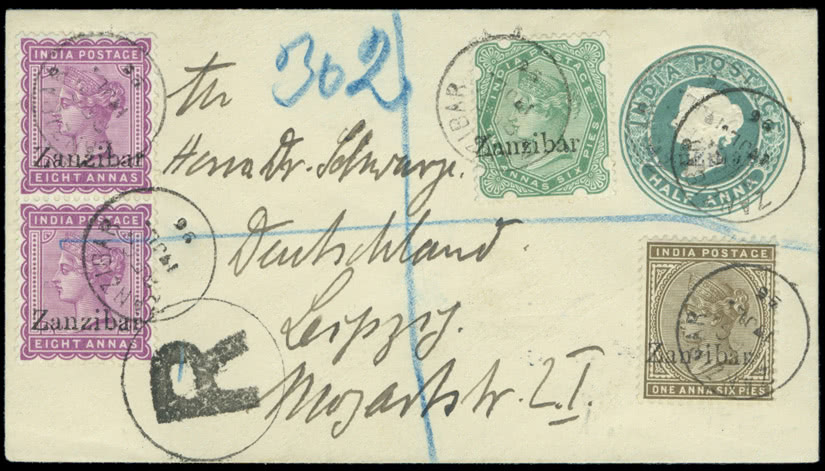 INDIA POSTAGE
Zanzibar
EIGHT ANNAS
INDIA POSTAGE
Zanzibar
EIGHT ANNAS
302
An
Herrn Dr. Schwarze.
Deutschland
Leipzig.
Mozartstr. 2 I.
R
INDIA POSTAGE
Zanzibar
ANNAS SIX PIES
INDIA POSTAGE
HALF ANNA
INDIA POSTAGE
Zanzibar
ONE ANNA SIX PIES
ZANZIBAR
96